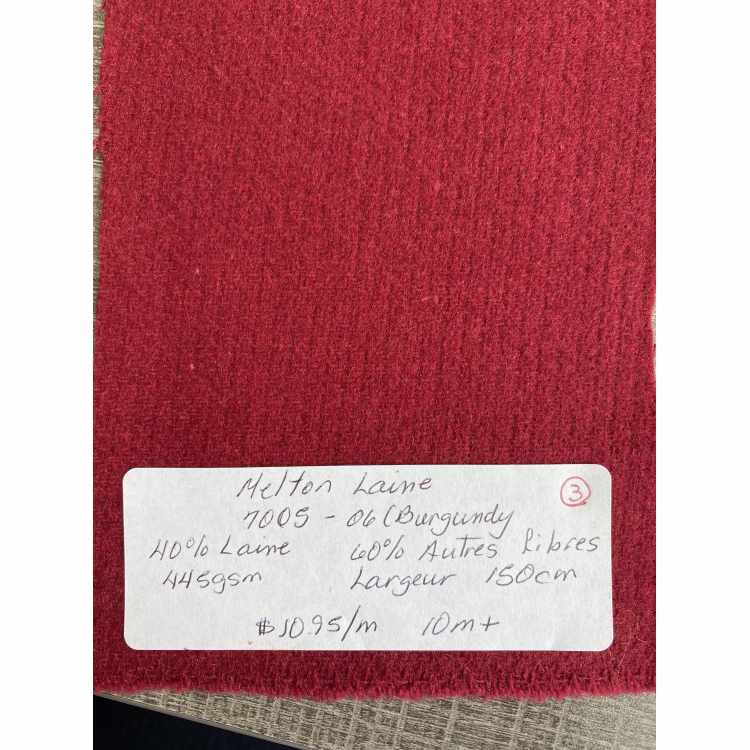 Melton Laine
3
7005 - 06 (Burgundy
40% Laine 60% Autres fibres
445gsm Largeur 150cm
$10.95/m 10m+